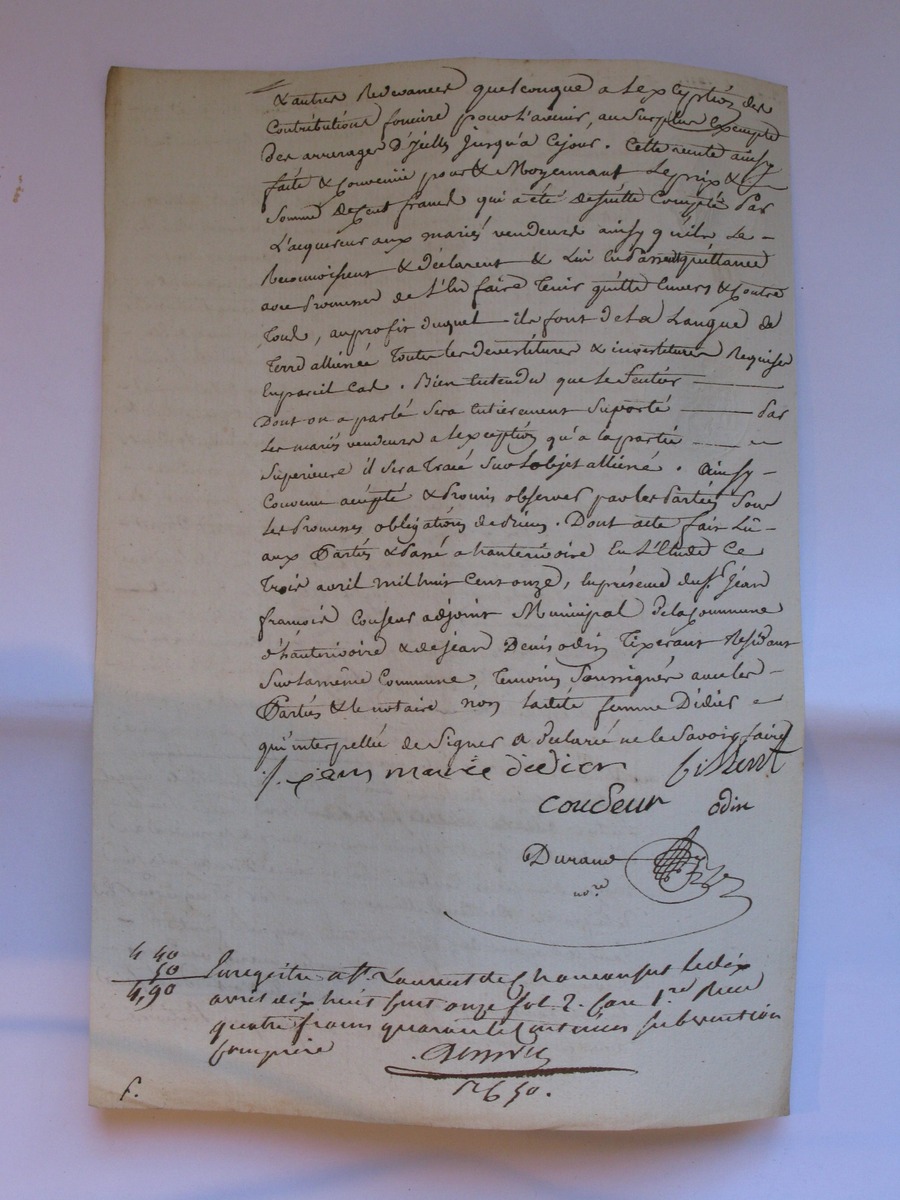 & autres Redevances quelconque a Lexception des
Contributions fonciere pour L'avenir, au Surplus Exempte
des arrerages D'ycelles Jusqu'a Cejour. Cette vente ainsy
faite & Convenüe pour & Moyennant Le prix &
Somme de Cent francs qui a été desuitte Compté Par
L'acquereur aux mariés vendeurs ainsy qu'ils Le
Reconnoissent & déclarent & Lui En passent quittance
avec Promesse de L'En faire Tenir quitte Envers & Contre
Tous, au profit duquel ils font de La Langue de
Terre alliénée Toutes les devestitures & investitures Requises
En pareil Cas. Bien Entendu que Le Sentier
Dont on a parlé Sera Entierement Suporté Par
Les mariés vendeurs a Lexception qu'a la partie
Supérieure il Sera Tracé Sur Lobjet alliéné. Ainsy
Convenu accépté & Promis observer par les Parties Sous
Les Promesses obligations de Biens. Dont acte fait Lû
aux Parties & Passé a hauterivoire En L'Etude Ce
Trois avril mil huit Cent onze, En présence du Sr. Jean
françois Couseur adjoint Municipal de la Commune
d'hauterivoire & de Jean Denis odin Tixerant Résidant
Sur La même Commune, Temoins Soussignés avec les
Parties & le notaire non ladite femme Didier
qu'interpellée de Signer a declaré ne le Savoir faire
Jean marie dedier
couseur odin
Durand
nore
4 40
50
4,90
Enregistré a St. Laurent de Chamousset le dix
avril dix huit Cent onze fol. 2. Case 1re. Reçu
quatre francs quarante Centimes Subvention
Comprise